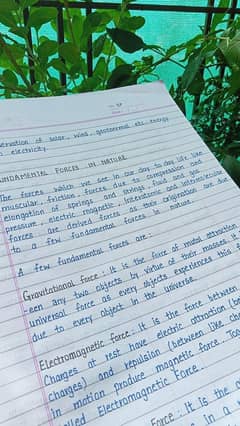 servation of solar, wind, geothermal etc energy
electricity.
NDAMENTAL FORCES IN NATURE
The forces which we see in our day to day life like
muscular, friction, forces due to compression and
elongation of springs and strings, fluid and gas
pressure, electric, magnetic, interatomic and intermolecular
forces are derived forces as their originations are due
to a few fundamental forces in nature.
A few fundamental forces are:
Gravitational Force: It is the force of mutual attraction
-een any two objects by virtue of their masses. It
universal force as every objects experiences this
due to every object in the universe.
Electromagnetic Force: It is the force between
Charges at rest have electric attraction (be
charges) and repulsion (between like
in motion produce magnetic force. Toge
lled Electromagnetic Force.
Force: It is the
in a